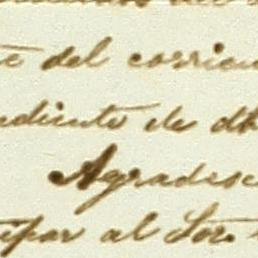 del corrien
diente de dh
Agradesc
ipar al Sor.